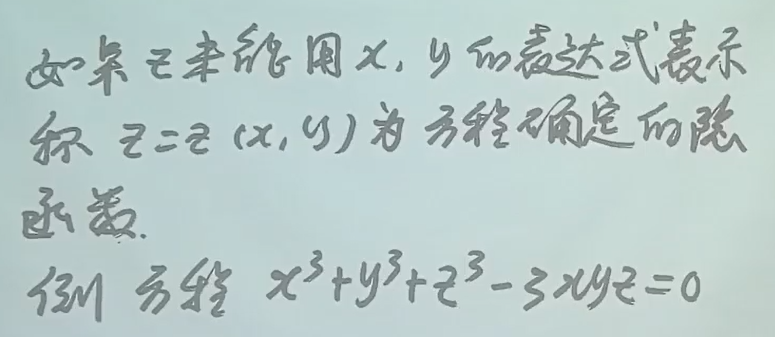 如果z未能用x,y的表达式表示
称 z=z(x,y)为方程确定的隐
函数.
例 方程 x³+y³+z³-3xyz=0